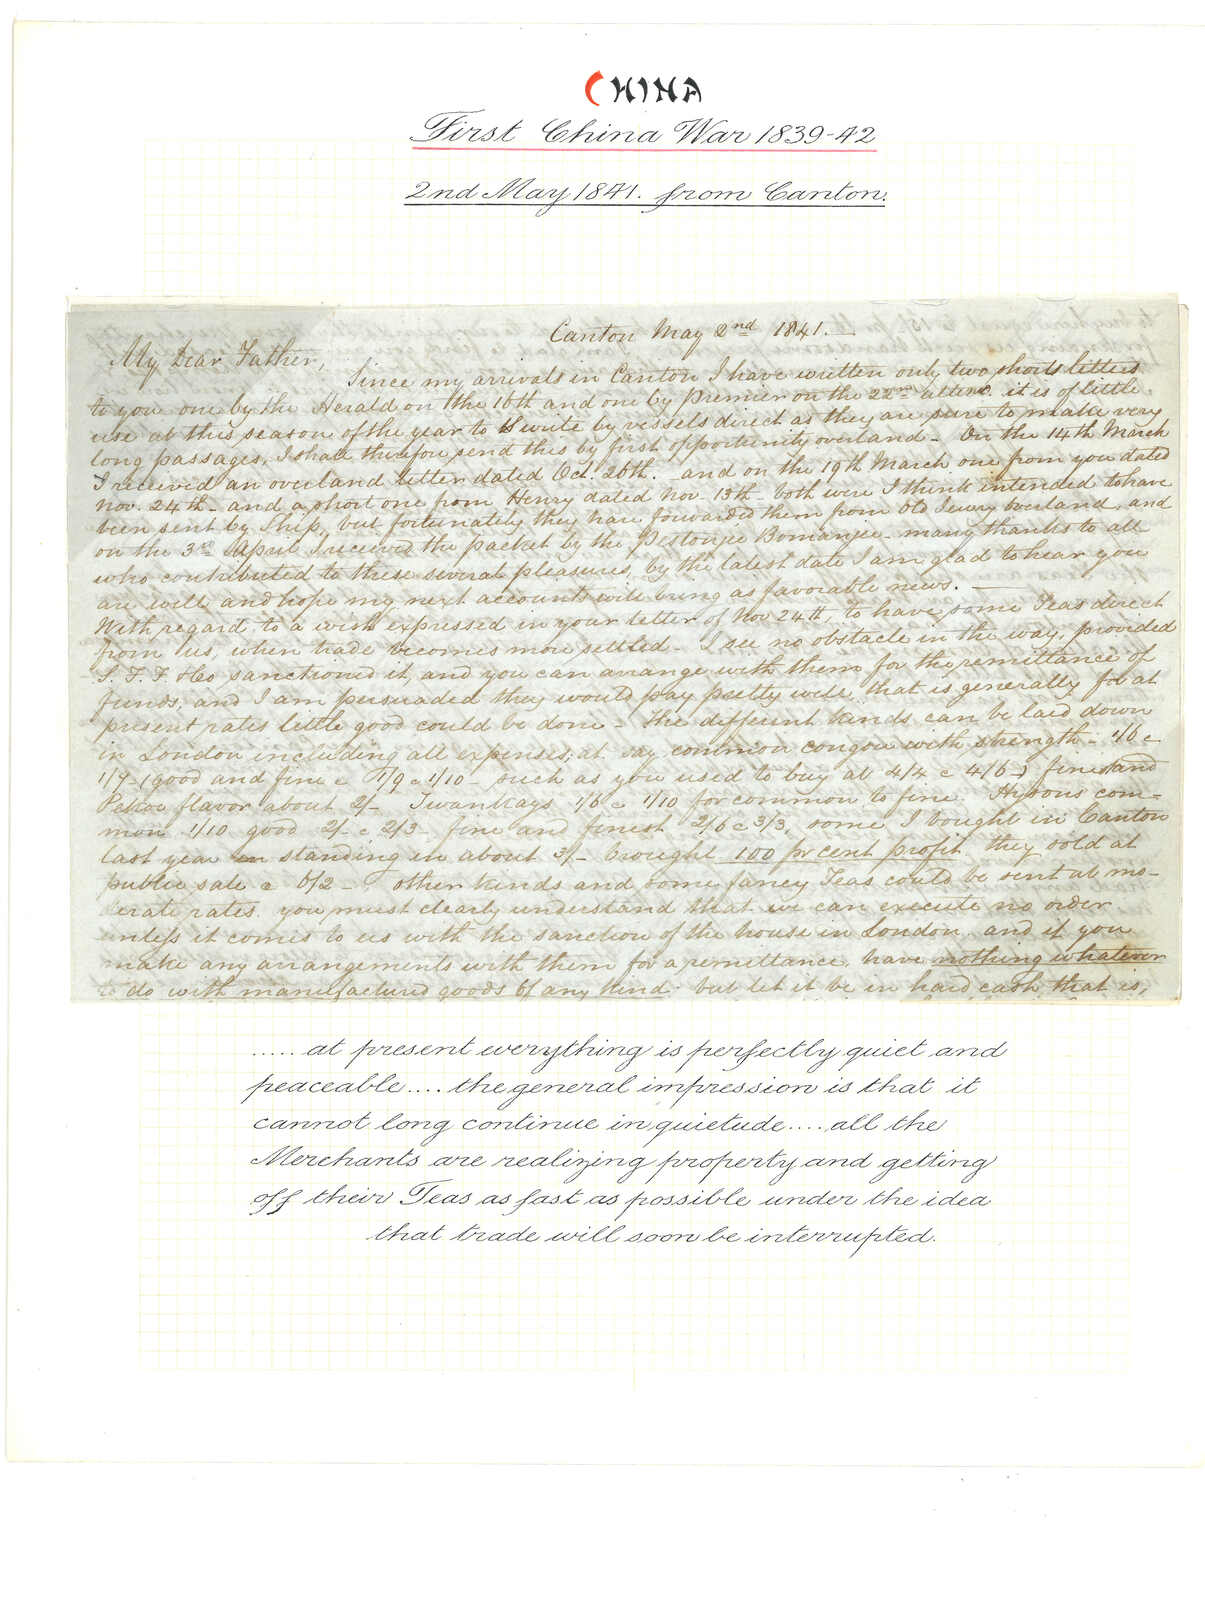 CHINA
First China War 1839-42
2nd May 1841. from Canton.
Canton May 2nd 1841.—
My Dear Father,
Since my arrival in Canton I have written only two short letters
to you one by the Herald on the 16th and one by Premier on the 22nd it is of little
use at this season of the year to write by vessels direct as they are sure to make very
long passages, I shall therefore send this by first opportunity overland - On the 14th March
I received an overland letter dated Oct. 26th. - and on the 19th March one from you dated
Nov. 24th - and a short one from Henry dated Nov. 13th - both were I think intended to have
been sent by Ship, but fortunately they have forwarded them from Old Jewry overland, and
on the 3rd April I received the packet by the Pestonjee Bomanjee - many thanks to all
who contributed to these several pleasures, by the latest date I am glad to hear you
are well and hope my next accounts will bring as favorable news. —
With regard to a wish expressed in your letter of Nov 24th, to have some Teas direct
from us, when trade becomes more settled - I see no obstacle in the way, provided
S. F. F. & Co sanctioned it, and you can arrange with them for the remittance of
funds, and I am persuaded they would pay pretty well, that is generally for at
present rates little good could be done - the different kinds can be laid down
in London including all expenses, at say common congou with strength - 1/6 @
1/7 - (good and fine @ 1/9 @ 1/10 - such as you used to buy at 4/4 @ 4/6) finest and
Pekoe flavor about 2/- Twankays 1/6 @ 1/10 for common to fine. Hysons com-
mon 1/10 good 2/- @ 2/3 - fine and finest 2/6 @ 3/3, some I bought in Canton
last year standing in about 3/- brought 100 pr cent profit they sold at
public sale @ 6/2 - other kinds and some fancy Teas could be sent at mo-
derate rates. you must clearly understand that we can execute no order
unless it comes to us with the sanction of the house in London. and if you
make any arrangements with them for a remittance, have nothing whatever
to do with manufactured goods of any kind. but let it be in hard cash that is,
..... at present everything is perfectly quiet and
peaceable .... the general impression is that it
cannot long continue in quietude .... all the
Merchants are realizing property and getting
off their Teas as fast as possible under the idea
that trade will soon be interrupted.